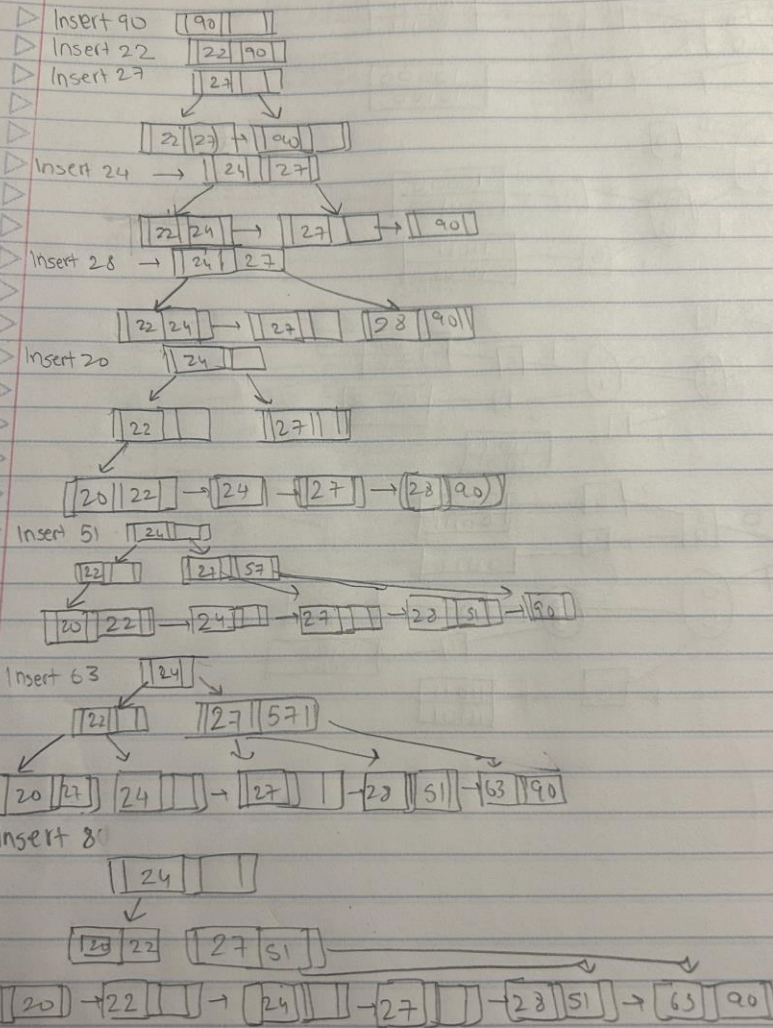 Insert 90 90
Insert 22 22 90
Insert 27 27
22 27 → 90
Insert 24 → 24 27
22 24 → 27 → 90
Insert 28 → 24 27
22 24 → 27 28 90
Insert 20 24
22 27
20 22 → 24 → 27 → 28 90
Insert 51 24
22 27 57
20 22 → 24 → 27 → 28 51 → 90
Insert 63 24
22 27 57
20 27 24 → 27 → 28 51 → 63 90
Insert 8
24
20 22 27 51
20 → 22 → 24 → 27 → 28 51 → 63 90